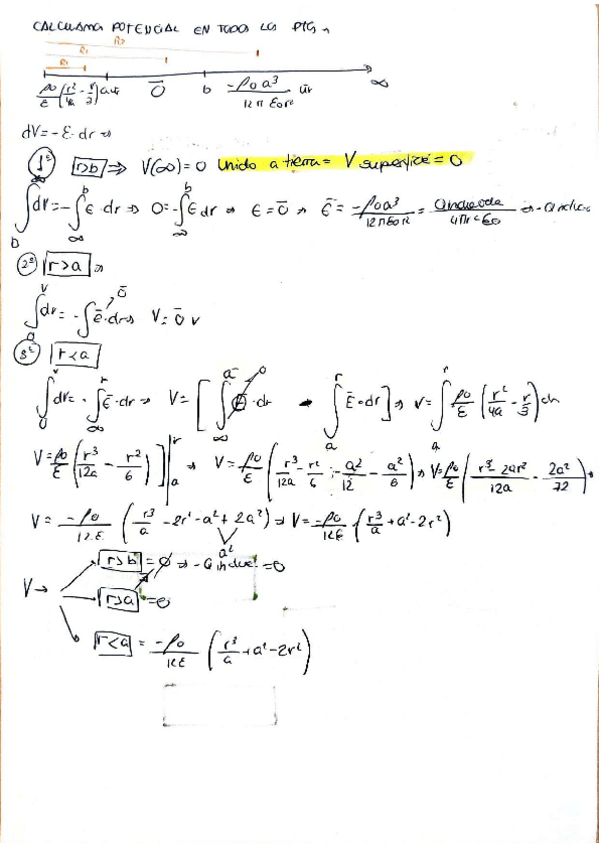 CALCULAMOS POTENCIAL EN TODOS LOS PTOS
R1 R2 R3
ρ0/ε (r²/4a - r/3) a ūr 0̄ b -ρ0a³/12πε0r² ūr ∞
dV = -ε·dr ⇒
1º r>b ⇒ V(∞)=0 Unido a tierra = V superficie = 0
∫dv = -∫_∞^b ε·dr ⇒ 0 = -∫_∞^b ε dr ⇒ ε = 0̄ ⇒ ε̄ = -ρ0a³/12πε0r² =
2º r>a ⇒
∫_0^V dv = -∫ ε̄·dr ⇒ V = 0̄ v
3º r<a
∫_0^V dv = -∫_∞^r ε̄·dr ⇒ V = [∫_∞^a ε̄·dr - ∫_a^r ε̄·dr] ⇒ V = ∫_a^r ρ0/ε (r²/4a - r/3) dr
V = ρ0/ε (r³/12a - r²/6)]|_a^r ⇒ V = ρ0/ε (r³/12a - r²/6 - a²/12 - a²/6) ⇒ V = ρ0/ε (r³ - 2ar²/12a - 2a²/72)
V = -ρ0/12ε (r³/a - 2r² - a² + 2a²) ⇒ V = -ρ0/12ε (r³/a + a² - 2r²)
a²
V → r>b = 0 ⇒ -Q induc = 0
r>a = 0
r<a = -ρ0/12ε (r³/a + a² - 2r²)